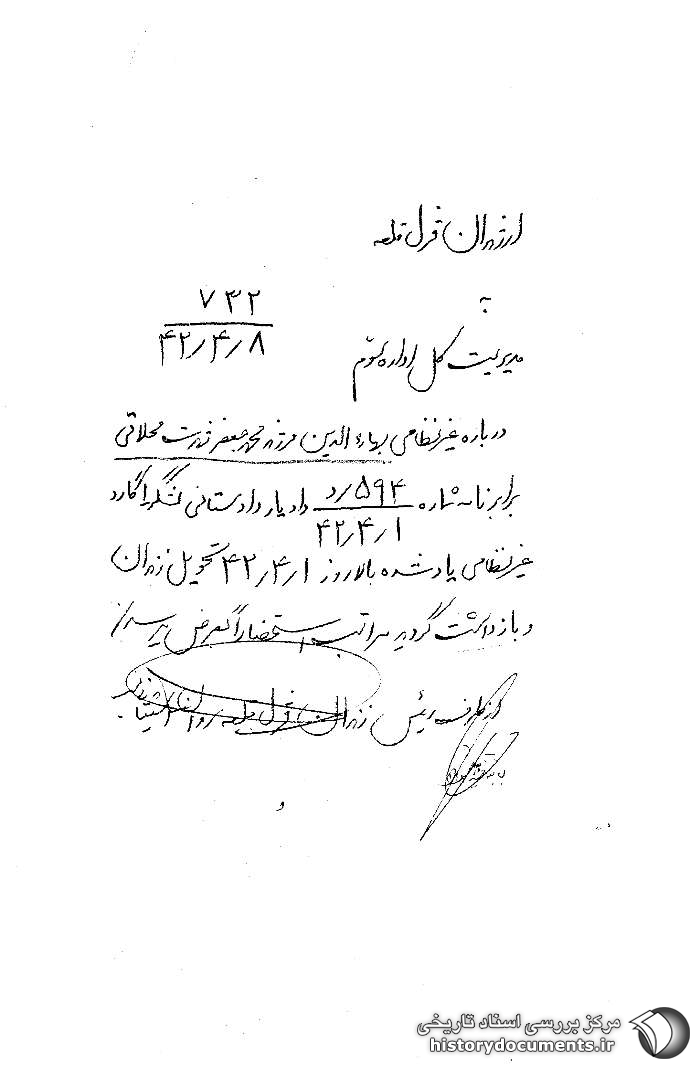 از زندان قزل قلعه
به
۷۳۲
۴۲/۴/۸
مدیریت کل اداره سوم
درباره غیرنظامی بهاءالدین فرزند محمدجعفر شهرت محلاتی
برابر نامه شماره ۵۹۴/د دادیار دادستانی لشگر ۱ گارد
۴۲/۴/۱
غیرنظامی یاد شده بالا روز ۴۲/۴/۱ تحویل زندان
و بازداشت گردید مراتب استحضاراً بعرض میرسد/
از طرف رئیس زندان قزل قلعه
مرکز بررسی اسناد تاریخی
historydocuments.ir